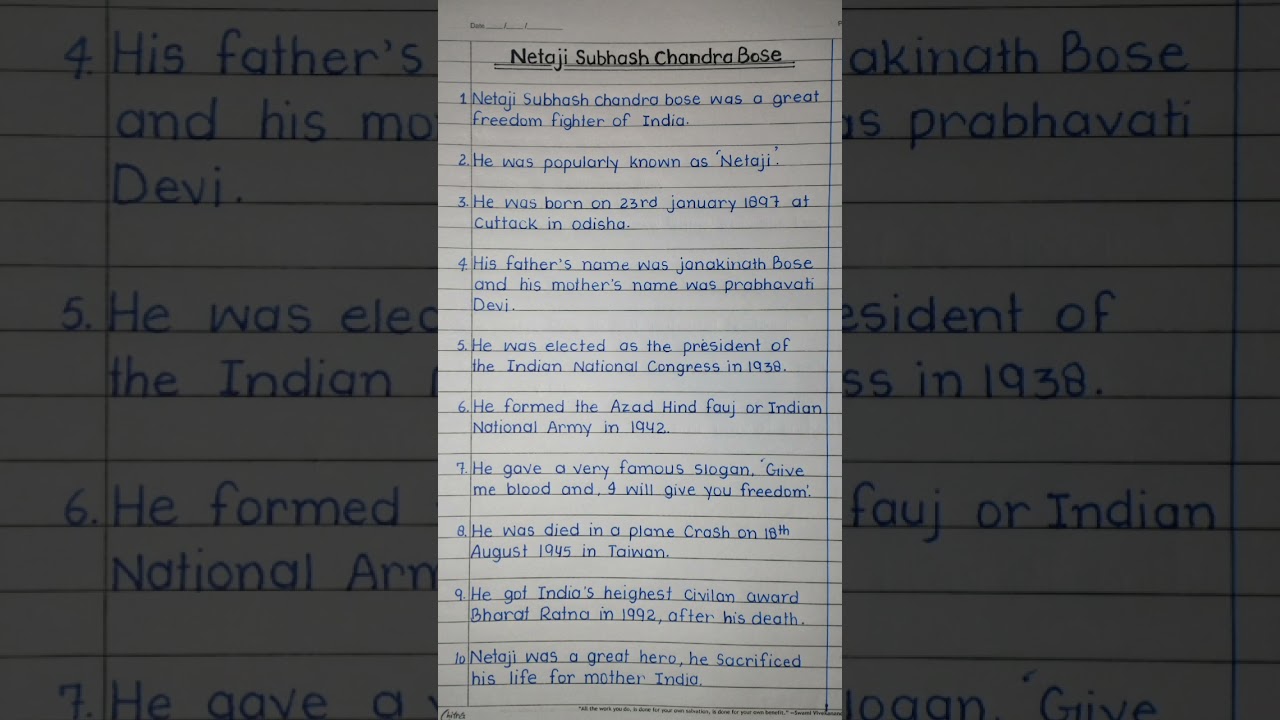 Date ___/___/______
P
Netaji Subhash Chandra Bose
1 Netaji Subhash chandra bose was a great
freedom fighter of India.
2. He was popularly known as 'Netaji'.
3. He was born on 23rd january 1897 at
Cuttack in odisha.
4. His father's name was janakinath Bose
and his mother's name was prabhavati
Devi.
5. He was elected as the president of
the Indian National Congress in 1938.
6. He formed the Azad Hind fauj or Indian
National Army in 1942.
7. He gave a very famous slogan, 'Give
me blood and, I will give you freedom'.
8. He was died in a plane Crash on 18th
August 1945 in Taiwan.
9. He got India's heighest civilan award
Bharat Ratna in 1992, after his death.
10 Netaji was a great hero, he Sacrificed
his life for mother India.
"All the work you do, is done for your own salvation, is done for your own benefit." —Swami Vivekanand
4. His father's
akinath Bose
and his mo
as prabhavati
Devi.
5. He was elec
esident of
the Indian
ss in 1938.
6. He formed
fauj or Indian
National Arm
7. He gave a v
slogan, 'Give